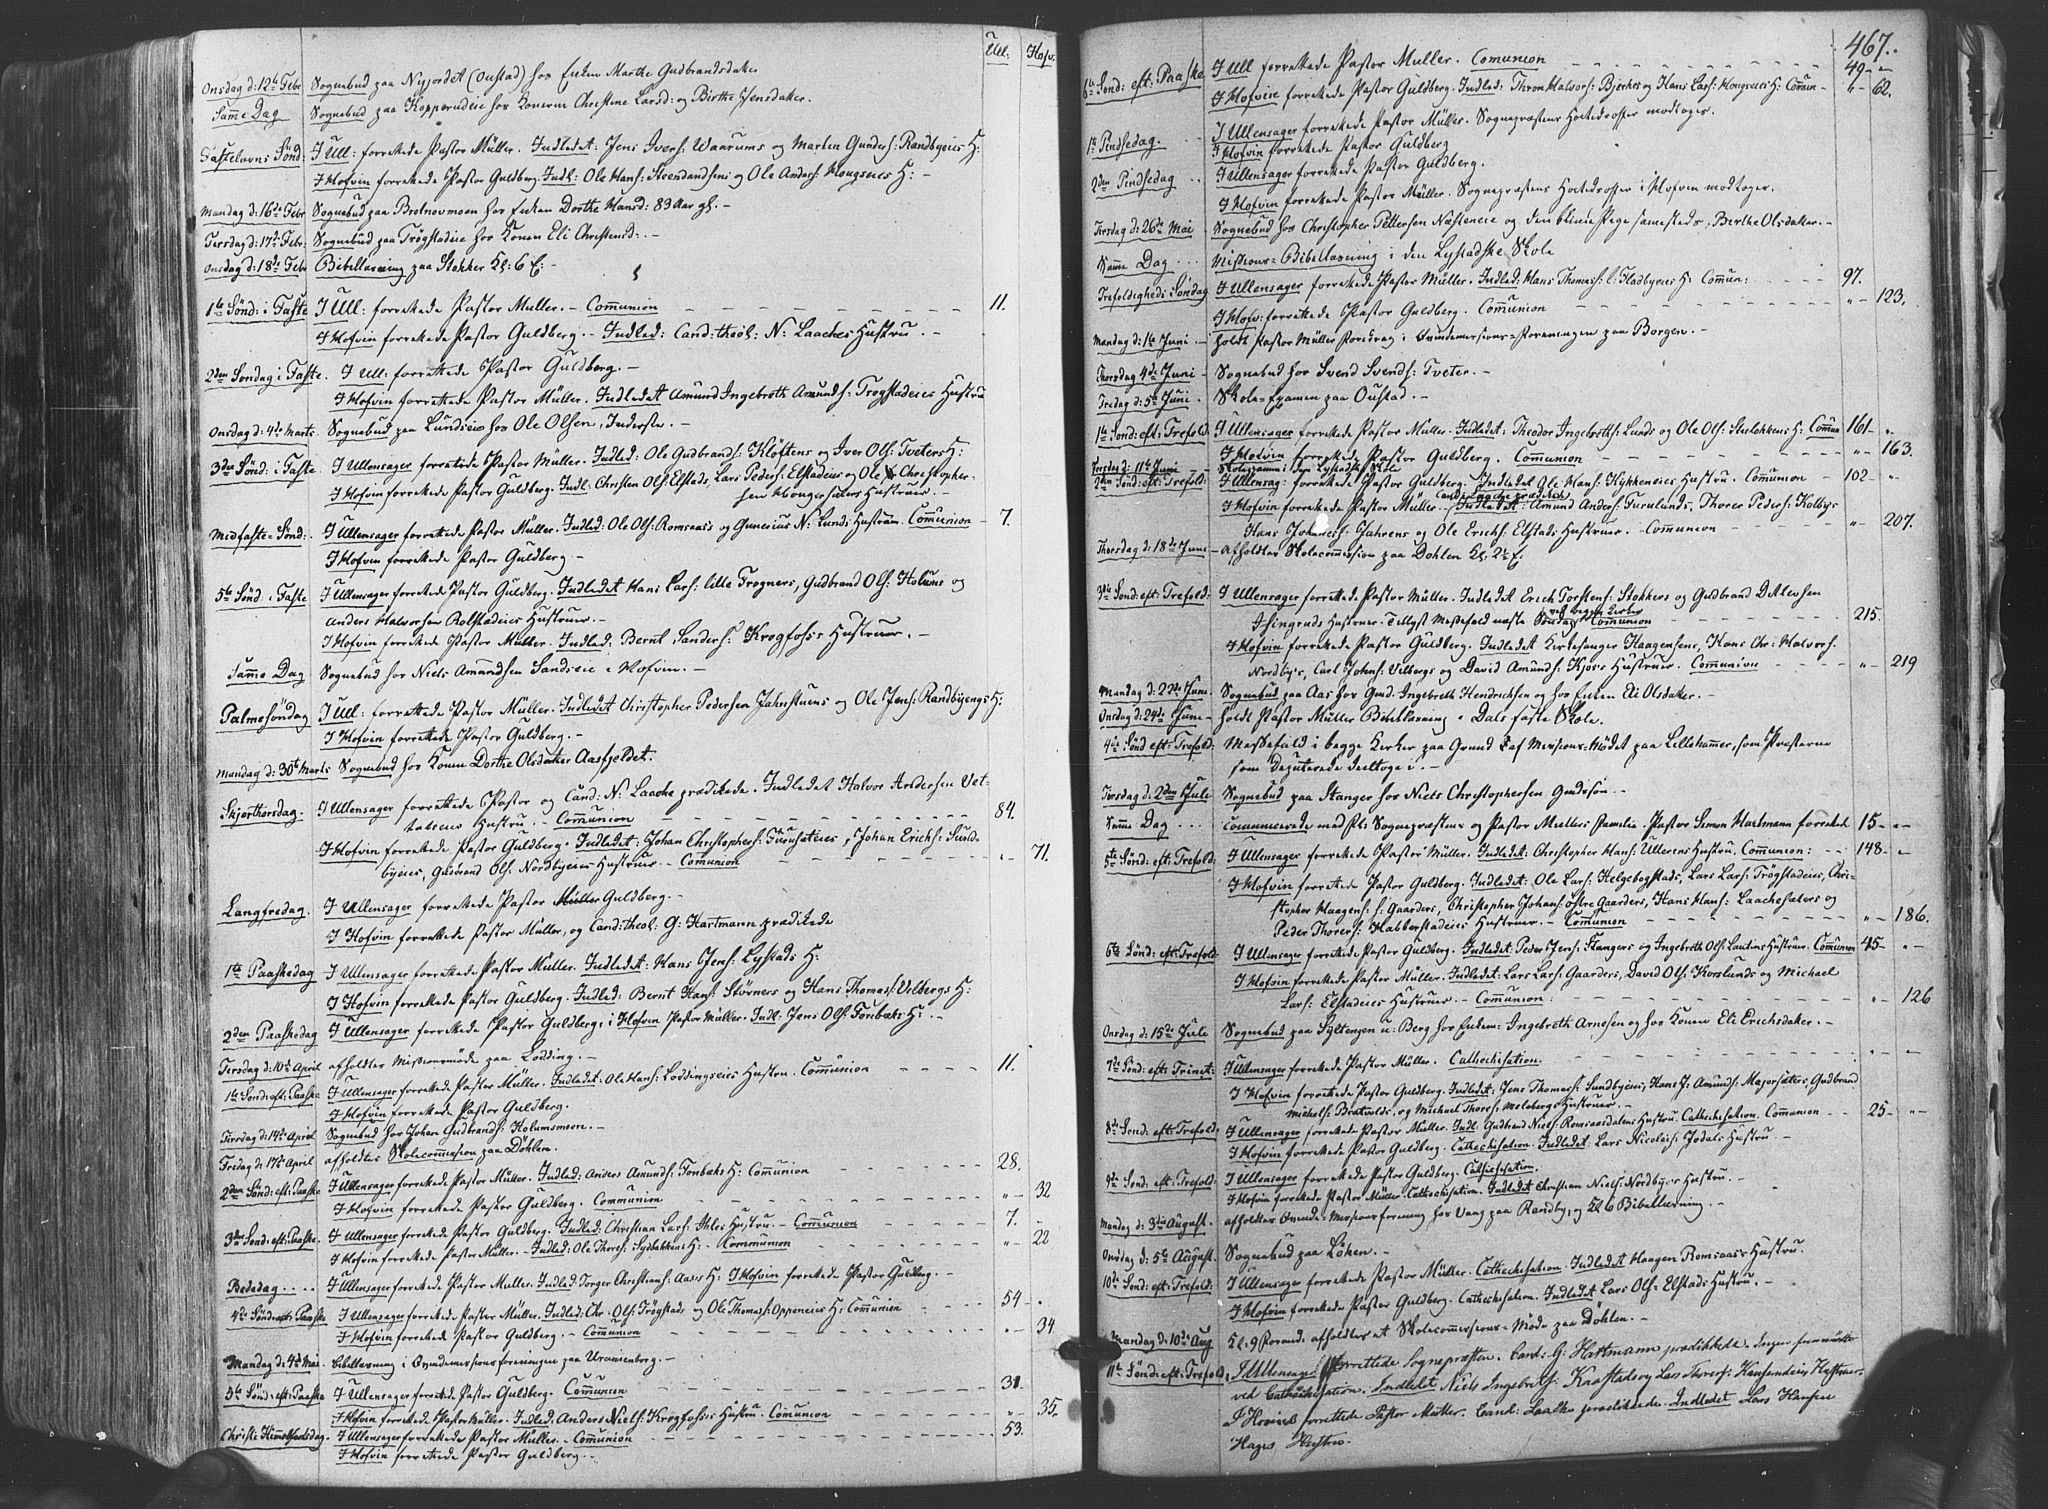 Ull: Hofv:
Onsdag d: 12te Febr Sognebud paa Nyjordet (Oustad) hos Enken Marthe Gudbrandsdater
Samme Dag Sognebud paa Kopperudeie hos Konerne Christine Larsd: og Birthe Jensdater.
Fastelavns Sönd: I Ull: forrettede Pastor Müller. Indledet: Jens Ivers: Waarums og Martin Gunders: Randbyeies H:
I Hofvin forrettede Pastor Guldberg. Indl: Ole Hans: Steendansens og Ole Anders: Hougseies H: -
Mandag d: 16de Febr Sognebud paa Brotnovmoen hos Enken Dorthe Hansd: 83 Aar gl. -
Tirsdag d: 17de Febr: Sognebud paa Trögstadeie hos Konen Eli Christensd: -
Onsdag d: 18de Febr Bibellæsning paa Stokker Kl: 6 E: -
1ste Sönd: i Faste I Ull: forrettede Pastor Müller. - Communion 11.
I Hofvin forrettede Pastor Guldberg - Indled: Cand: theol: N: Laaches Hustru. -
2den Söndag i Faste. I Ull: forrettede Pastor Guldberg. -
I Hofvin forrettede Pastor Müller. Indledet Amund Ingebreth Amunds: Trögstadeies Hustru
Onsdag d: 4de Marts. Sognebud paa Lundseie hos Ole Olsen, Inderste. -
3die Sönd: i Faste I Ullensager forrettede Pastor Müller. Indled: Ole Gudbrands: Klöftens og Iver Ols: Tveters H:
I Hofvin forrettede Pastor Guldberg. Indl: Christen Ols: Elstads, Lars Peders: Elstadeies og Ole Christopher-
sen Hougersæters Hustruer. -
Midfaste-Sönd: I Ullensager forrettede Pastor Müller. Indled: Ole Ols: Romsaas's og Gunerius N: Lunds Hustruer. Communion - 7.
I Hofvin forrettede Pastor Guldberg -
5te Sönd: i Faste I Ullensager forrettede Pastor Guldberg. Indledet Hans Lars: lille Trogners, Gudbrand Ols: Holums og
Anders Halvorsen Rolstadeies Hustruer. -
I Hofvin forrettede Pastor Müller. Indled: Bernt Sanders: Krogfoss's Hustruer. -
Samme Dag Sognebud hos Niels Amundsen Sandseie i Hofvin. -
Palmesöndag I Ull: forrettede Pastor Müller. Indledet Christopher Pedersen Jahnstuens og Ole Jens: Randbyengs H:
I Hofvin forrettede Pastor Guldberg. -
Mandag d: 30te Marts Sognebud hos Konen Dorthe Olsdatter Aasfjeldet.
Skjærthorsdag. I Ullensager forrettede Pastor og Cand: N: Laache prædikede. Indledet Halvor Andersen Vet-
talseies Hustru. - Communion 84.
I Hofvin forrettede Pastor Guldberg. Indledet: Johan Christophers: Furusæteies, Johan Erichs: Sund-
byeies, Gulbrand Ols: Nordbyeies Hustruer. - Comunion " - 71.
Langfredag. I Ullensager forrettede Pastor Müller Guldberg. -
I Hofvin forrettede Pastor Müller, og Cand: theol: G: Hartmann prædikede
1ste Paaskedag I Ullensager forrettede Pastor Müller. Indledet: Hans Jens: Lystads H:
I Hofvin forrettede Pastor Guldberg. Indled: Bernt Hans: Störners og Hans Thomas: Vilbergs H:
2den Paaskedag I Ullensager forrettede Pastor Guldberg: i Hofvin Pastor Müller. Indl: Jens Ols: Fonbæks H: -
Tirsdag d: 10de April afholdtes Missionsmöde paa Lodding. -
1ste Sönd: eft: Paaske I Ullensager forrettede Pastor Müller. Indledet: Ole Hans: Loddingseies Hustru. Communion 11.
I Hofvin forrettede Pastor Guldberg.
Tirsdag d: 14de April Sognebud hos Johan Gudbrands: Holumsmoen. -
Fredag d: 17de April afholdtes Skolecommission paa Döhlen.
2den Sönd: eft: Paaske I Ullensager forrettede Pastor Müller. Indled: Anders Amunds: Fonbæks H: Communion 28.
I Hofvin forrettede Pastor Guldberg. Communion " - 32
3die Sönd: eft: Paaske. I Ullensager forrettede Pastor Guldberg. Indled: Christian Lars: Ihles Hustru. - Communion 7. -
I Hofvin forrettede Pastor Müller. - Indled: Ole Thores: Sysbakkens H: - Communion " - 22
Bededag . . . . I Ullensager forrettede Pastor Müller. Indled: Torger Christians: Aases H: I Hofvin forrettede Pastor Guldberg. -
4de Sönd: eft: Paaske I Ullensager forrettede Pastor Müller. Indled: Chr: Ols: Trögstads og Ole Thomas: Oppeneies H: Communion 54 - .
I Hofvin forrettede Pastor Guldberg. - Comunion " - 34
Mandag d: 4de Mai. Bibellæsning i Qvindemissionsforeningen paa Uranienborg. -
5te Sönd: eft: Paaske I Ullensager forrettede Pastor Guldberg. Comunion 31.
I Hofvin forrettede Pastor Müller. Indled: Anders Niels: Krogfoss's Hustru. Comunion " - 35.
Christi Himmelfartsdag. I Ullensager forrettede Pastor Müller. - Comunion 53.
I Hofvin forrettede Pastor Guldberg. -
467.
6te Sönd: eft: Paaske I Ull forrettede Pastor Müller. Comunion 49 - "
I Hofvin forrettede Pastor Guldberg. Indled: Thron Halvors: Bjerkes og Hans Lars: Hougseies H: Comun - " - 62.
1ste Pindsedag. I Ullensager forrettede Pastor Müller. Sognepræstens Höitidsoffer modtoges.
I Hofvin forrettede Pastor Guldberg
2den Pindsedag . . I Ullensager forrettede Pastor Guldberg.
I Hofvin forrettede Pastor Müller. Sognepræstens Höitidsoffer i Hofvin modtoges.
Tirsdag d: 26de Mai Sognebud hos Christopher Pettersen Næsteneie og den blinde Pige sammesteds, Berthe Olsdater. -
Samme Dag . . . Missions-Bibellæsning i den Lystadske Skole
Trefoldigheds Söndag I Ullensager forrettede Pastor Müller. Indled: Hans Thomas: l: Fladbyeies H: Comun: 97.
I Hofv: forrettede Pastor Guldberg. Comunion " - 123.
Mandag d: 1ste Juni - holdt Pastor Müller Foredrag i Qvindemissions-Foreningen paa Borgen. -
Thorsdag 4de Juni - Sognebud hos Svend Svends: Tveter. -
Fredag d: 5te Juni . Skole-Examen paa Oustad. -
1ste Sönd: eft: Trefold: I Ullensager forrettede Pastor Müller. Indledet: Theodor Ingebreths: Lunds og Ole Ols: Stulskkens H: Comun 161 - "
I Hofvin forrettede Pastor Guldberg. Comunion " - 163.
Torsdag d: 11te Juni Skoleexamen i den Lystadske Skole
2den Sönd: eft: Trefold: I Ullensag: forrettede Pastor Guldberg. Indledet Ole Hans: Kjykkeneies Hustru. Comunion - 102 - "
I Hofvin forrettede Pastor Müller - Cand: Laache prædikede. Indledet: Amund Anders: Furulunds, Thorer Peders: Kolbys
Hans Johannes: Jahrens og Ole Erichs: Elstads Hustruer. - Comunion " - 207.
Thorsdag d: 18de Juni - afholdtes Skolecommission paa Döhlen Kl. 2½ E
3die Sönd: eft: Trefold: I Ullensager forrettede Pastor Müller. Indledet Erich Torstens: Stokkers og Gudbrand Ditlevsen
Isingruds Hustruer. Tillyst Messefald næste Söndag ved begge Kirker Comunion 215.
I Hofvin forrettede Pastor Guldberg. Indledet Kirkesanger Haagensens, Hans Chr: Halvors:
Nordby's, Carl Johans: Vilbergs og David Amunds: Kjos's Hustruer. Comunion " - 219
Mandag d: 22de Juni. Sognebud paa Aas hos Gmd. Ingebreth Hendrichsen og hos Enken Eli Olsdater. -
Onsdag d: 24de Juni - holdt Pastor Müller Bibellæsning i Dals faste Skole.
4de Sönd: eft: Trefold: Messefald i begge Kirker paa Grund af Missions-Mödet paa Lillehammer, som Præsterne
som Deputerede deeltoge i. -
Torsdag d: 2den Juli Sognebud paa Stanger hos Niels Christophersen Gundersön. -
Samme Dag . . . . Comunicerede med Kl: Sognepræstens og Pastor Müllers Familie. Pastor Simon Hartmann forrettede 15 - "
5te Sönd: eft: Trefold: I Ullensager forrettede Pastor Müller. Indledet: Christopher Hans: Ullerens Hustru. Comunion: - - 148 - "
I Hofvin forrettede Pastor Guldberg. Indledet: Ole Lars: Helgebogstads, Lars Lars: Trögstadeies, Chri-
stopher Haagens: s: Gaarders, Christopher Johans: östre Gaarders, Hans Hans: Laachesæters og
Peder Thorers: Habberstadeies Hustruer. - Comunion " - 186.
6te Sönd: eft: Trefold: I Ullensager forrettede Pastor Guldberg. Indledet: Peder Jens: Stangers og Ingebreth Ols: Lautins Hustruer. Comunion 45 - "
I Hofvin forrettede Pastor Müller. Indledet: Lars Lars: Gaarders, David Ols: Korslunds og Michael
Lars: Elstadeies Hustruer. - Comunion: " - 126
Onsdag d: 15de Juli Sognebud paa Syltengen u: Berg hos Enken: Ingebreth Arnesen og hos Konen Eli Erichsdater. -
7de Sönd: eft: Trinit: I Ullensager forrettede Pastor Müller. Cathechisation. " - "
I Hofvin forrettede Pastor Guldberg. Indledet: Jens Thomas: Sundbyeies, Hans J: Amunds: Majorsæters, Gudbrand
Michels: Bratvolds, og Michael Thores: Melbergs Hustruer. -
8de Sönd: eft: Trefold: I Ullensager forrettede Pastor Müller. Indl: Gudbrand Niels: Romsaasdalens Hustru. Cathechisation. Comunion - - 25 - "
I Hofvin forrettede Pastor Guldberg. Cathechisation. Indledet: Lars Nicolais: Jodals Hustru. -
9de Sönd: eft: Trefold: I Ullensager forrettede Pastor Guldberg. Cathechisation.
I Hofvin forrettede Pastor Müller. Cathechisation. Indledet Christian Niels: Nordbyes Hustru. -
Mandag d: 3die August. afholdtes Qvinde-Missionsforening hos Vaag paa Randby, og Kl 6 Bibellæsning. -
Onsdag d: 5te August. Sognebud paa Löken. -
10de Sönd: eft: Trefold: I Ullensager forrettede Pastor Müller. Cathechisation. Indledet Haagen Romsaas's Hustru.
I Hofvin forrettede Pastor Guldberg. Cathechisation. Indledet Lars Ols: Elstads Hustru. -
Mandag d: 10de Aug Kl. 9 Formd. afholdtes et Skolecommissions-Möde paa Döhlen. -
11te Sönd: eft: Trefold: I Ullensager forrettede Sognepræsten. Cand: G. Hartmann prædikede.
ved Catechisation. Indledet Niels Ingebr. Hustruer.
I Hovind forrettede Pastor Müller. Cand: Laache prædikede. Indledet Lars Hansen
Hages Hustru.